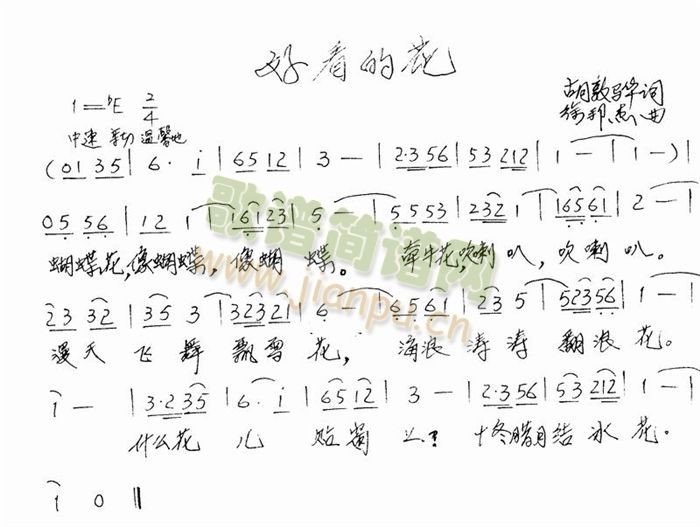 好看的花
1=♭E 2/4
胡敦骅词
中速 亲切 温馨地
徐邦杰曲
(01 35 | 6· i | 65 12 | 3 — | 2·3 56 | 53 212 | 1 — | 1 —) |
05 56 | 12 1 | 161 23 | 5 — | 55 53 | 232 1 | 16561 | 2 — |
蝴蝶花,像蝴蝶,像蝴蝶。牵牛花,吹喇叭,吹喇叭。
23 32 | 35 3 | 32321 | 6 — | 6561 | 23 5 | 52356 | 1 — |
漫天飞舞飘雪花,海浪涛涛翻浪花。
1 — | 3·2 35 | 6· i | 65 12 | 3 — | 2·3 56 | 53 212 | 1 — |
什么花儿贴窗上?十冬腊月结冰花。
1 0 ‖
歌谱简谱网
www.jianpu.cn